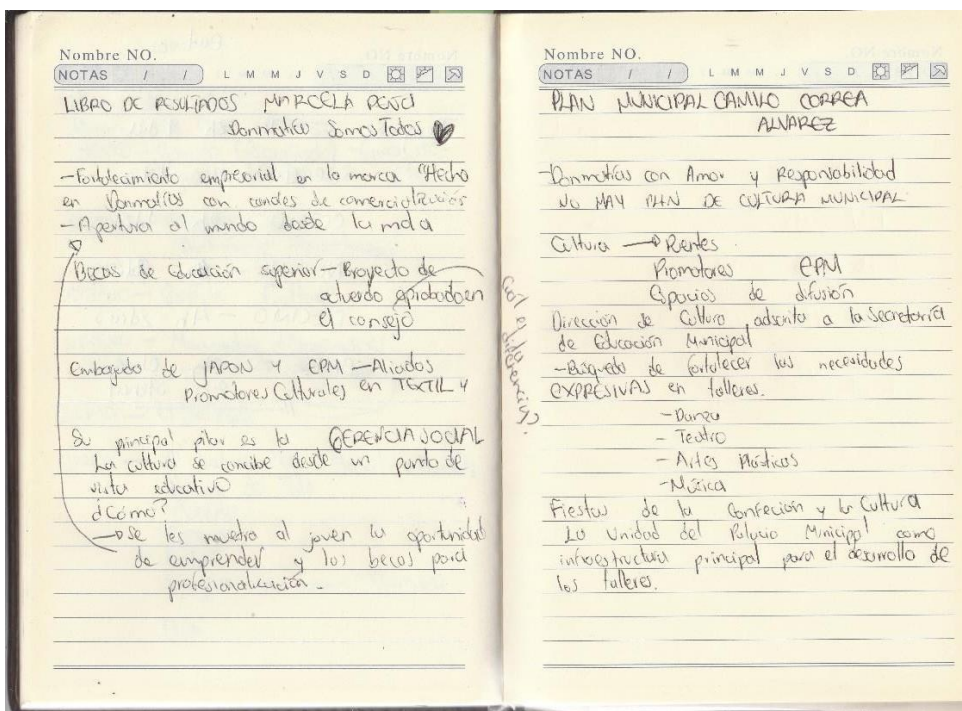 Nombre NO.
NOTAS / / L M M J V S D
LIBRO DE RESULTADOS MARCELA
Donmatías Somos Todos
-Fortalecimiento empresarial en la marca "Hecho
en Donmatías con canales de comercialización
-Apertura al mundo desde la moda
Becas de Educación superior - Proyecto de
acuerdo aprobado en
el consejo
Embajada de JAPON Y EPM - Aliados
Promotores Culturales en TEXTIL Y
Su principal pilar es la GERENCIA SOCIAL
La cultura se concibe desde un punto de
vista educativo
¿Cómo?
→ Se les muestra al joven la oportunidad
de emprender y las becas para
profesionalización -
Cuál es la
diferencia?
Nombre NO.
NOTAS / / L M M J V S D
PLAN MUNICIPAL CAMILO CORREA
ALVAREZ
-Donmatías con Amor y Responsabilidad
NO HAY PLAN DE CULTURA MUNICIPAL
Cultura →
Promotores EPM
Espacios de difusión
Dirección de Cultura adscrita a la Secretaría
de Educación Municipal
-Búsqueda de fortalecer las necesidades
EXPRESIVAS en talleres.
- Danza
- Teatro
- Artes Plásticas
- Música
Fiestas de la Confección y la Cultura
La Unidad del Palacio Municipal como
infraestructura principal para el desarrollo de
los talleres.